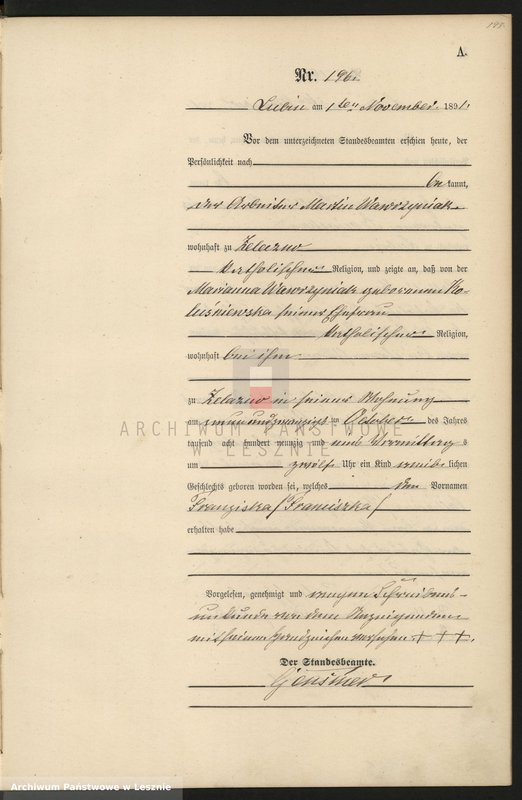 195.
A.
Nr. 196.
Lubin am 1ten November 1891.
Vor dem unterzeichneten Standesbeamten erschien heute, der
Persönlichkeit nach
be kannt,
der Arbeiter Martin Wawrzyniak
wohnhaft zu Zelazno
katholischer Religion, und zeigte an, daß von der
Marianna Wawrzyniak geborenen Ko-
luśniewska seiner Ehefrau
katholischer Religion,
wohnhaft bei ihm
zu Zelazno in seiner Wohnung
am neun und zwanzigsten October des Jahres
tausend acht hundert neunzig und eins Vormittags
um zwölf Uhr ein Kind weib lichen
Geschlechts geboren worden sei, welches den Vornamen
Franziska (Franciszka)
erhalten habe
Vorgelesen, genehmigt und wegen Schreibens-
unkunde von dem Anzeigenden
mit seinem Handzeichen versehen + + +.
Der Standesbeamte.
ARCHIWUM PAŃSTWOWE
W LESZNIE
Archiwum Państwowe w Lesznie